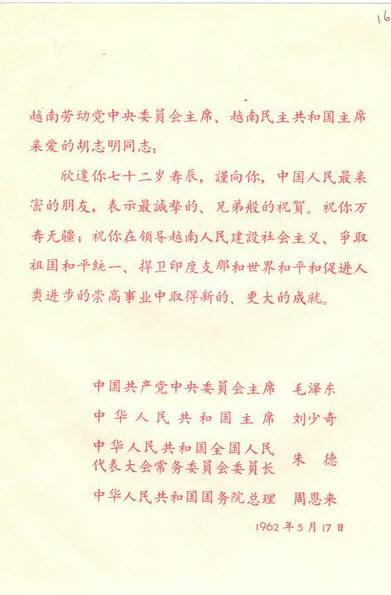 16
越南劳动党中央委員会主席、越南民主共和国主席
亲爱的胡志明同志:
欣逢你七十二岁寿辰，謹向你，中国人民最亲
密的朋友，表示最誠摯的、兄弟般的祝賀。祝你万
寿无疆；祝你在领导越南人民建設社会主义、爭取
祖国和平統一、捍卫印度支那和世界和平和促进人
类进步的崇高事业中取得新的、更大的成就。
中国共产党中央委員会主席 毛泽东
中华人民共和国主席 刘少奇
中华人民共和国全国人民
代表大会常务委員会委員长 朱德
中华人民共和国国务院总理 周恩来
1962年5月17日